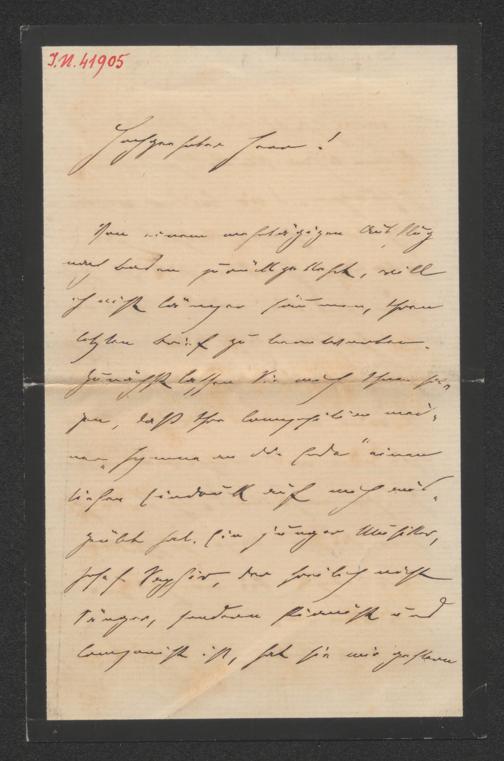 I.N. 41905
Hochgeehrter Herr!
Von einem mehrtägigen Ausflug
nach Baden zurückgekehrt, will
ich nicht länger säumen, Ihren
letzten Brief zu beantworten.
Zunächst lassen Sie mich Ihnen sa-
gen, daß Ihre Composition mei-
ner „Hymne an die Erde" einen
tiefen Eindruck auf mich aus-
geübt hat. Ein junger Musiker,
Josef, der freilich nicht
Sänger, sondern Pianist und
Componist ist, hat sie mir gestern